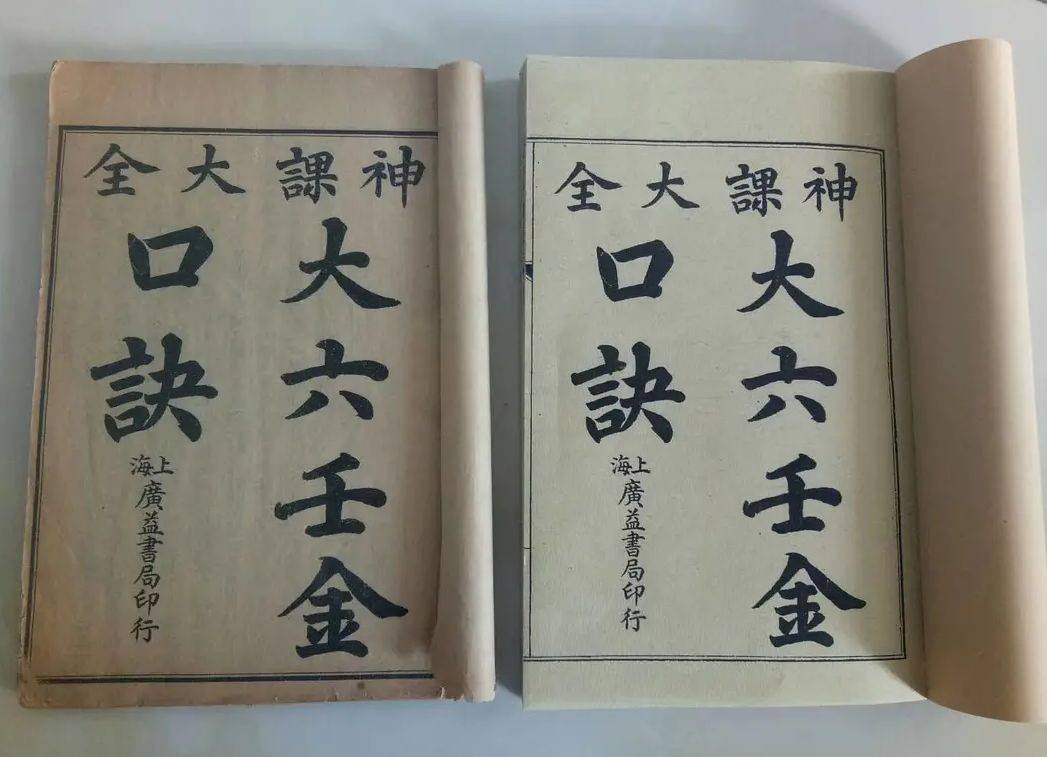 神課大全
大六壬金
口訣
上海廣益書局印行
神課大全
大六壬金
口訣
上海廣益書局印行